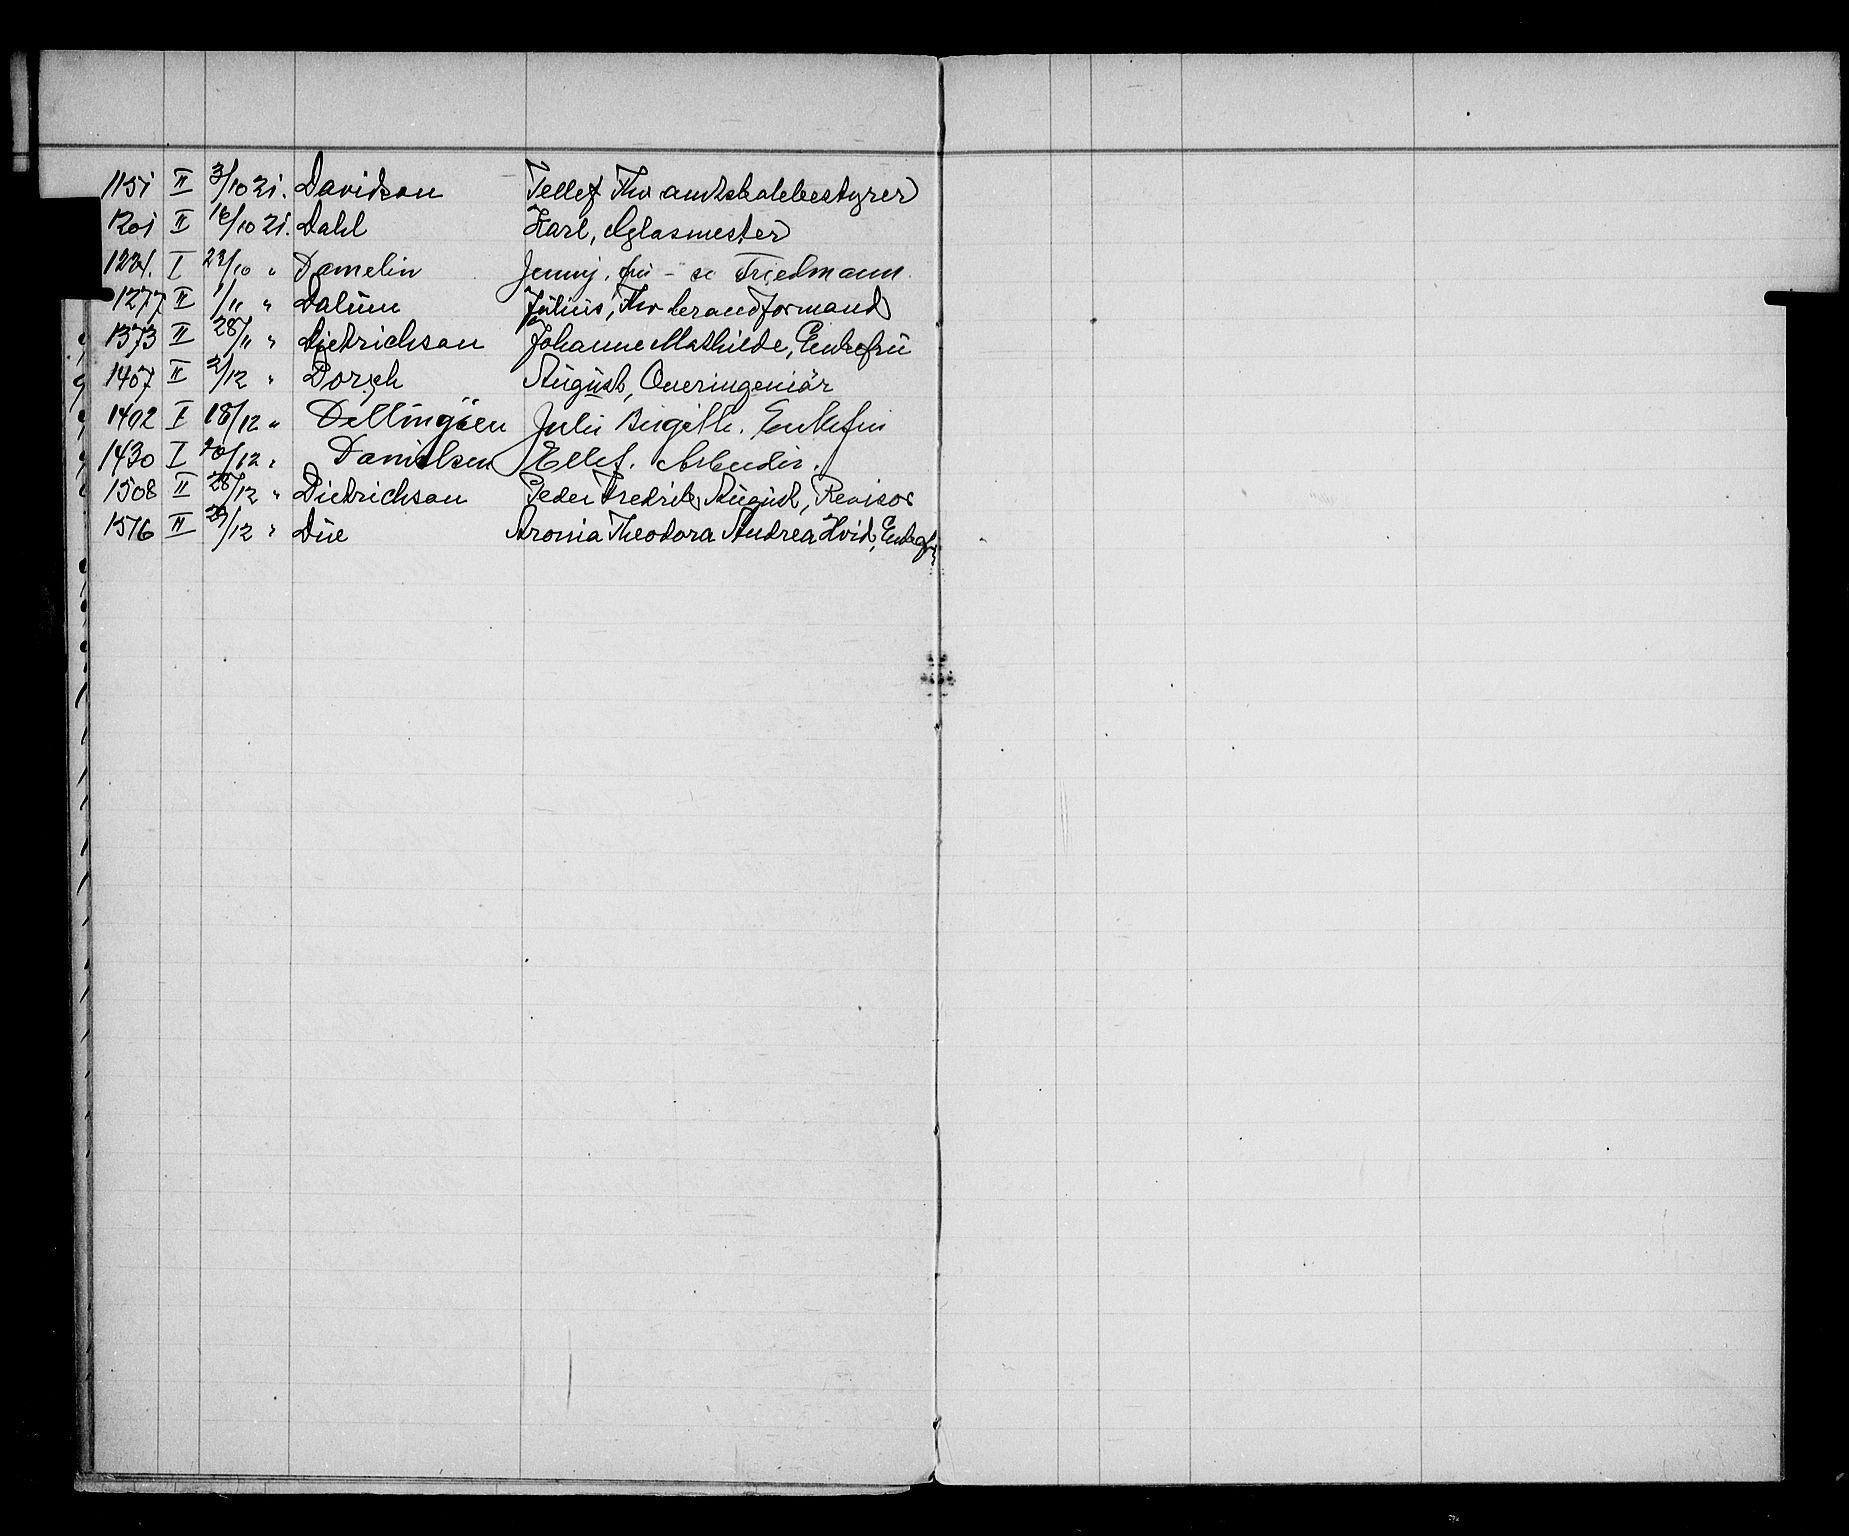 1151 II 3/10 21. Davidson Tellef Thv amtskolebestyrer
1201 II 16/10 21. Dahl Karl, Glasmester
1221. I 22/10 " Damelin Jenny, fru - se Friedmann
1277 II 1/11 " Dalum Julius, Thv brandformand
1373 II 28/11 " Dietrichson Johanne Mathilde, Enkefru
1407 II 2/12 " Dorsch August, Overingeniör
1492 I 18/12 " Dellingsen Julie Birgitte. Enkefru
1430 I 20/12 " Danielsen Ellef. Arbeider.
1508 II 28/12 " Dietrichson Peder Fredrik August, Revisor
1516 II 29/12 " Due Aronia Theodora Andrea Hvid, Enkefr.